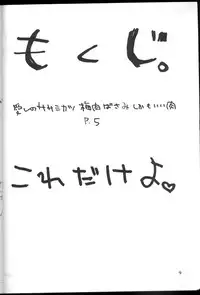 もくじ。
愛しのササミカツ 梅肉ばさみしかも‥‥肉
P.5
これだけよ♡